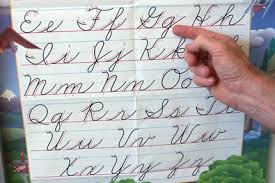 Ee Ff Gg Hh
Ii Jj Kk
Mm Nn Oo
Qq Rr Ss T
Uu Vv Ww
Xx Yy Zz